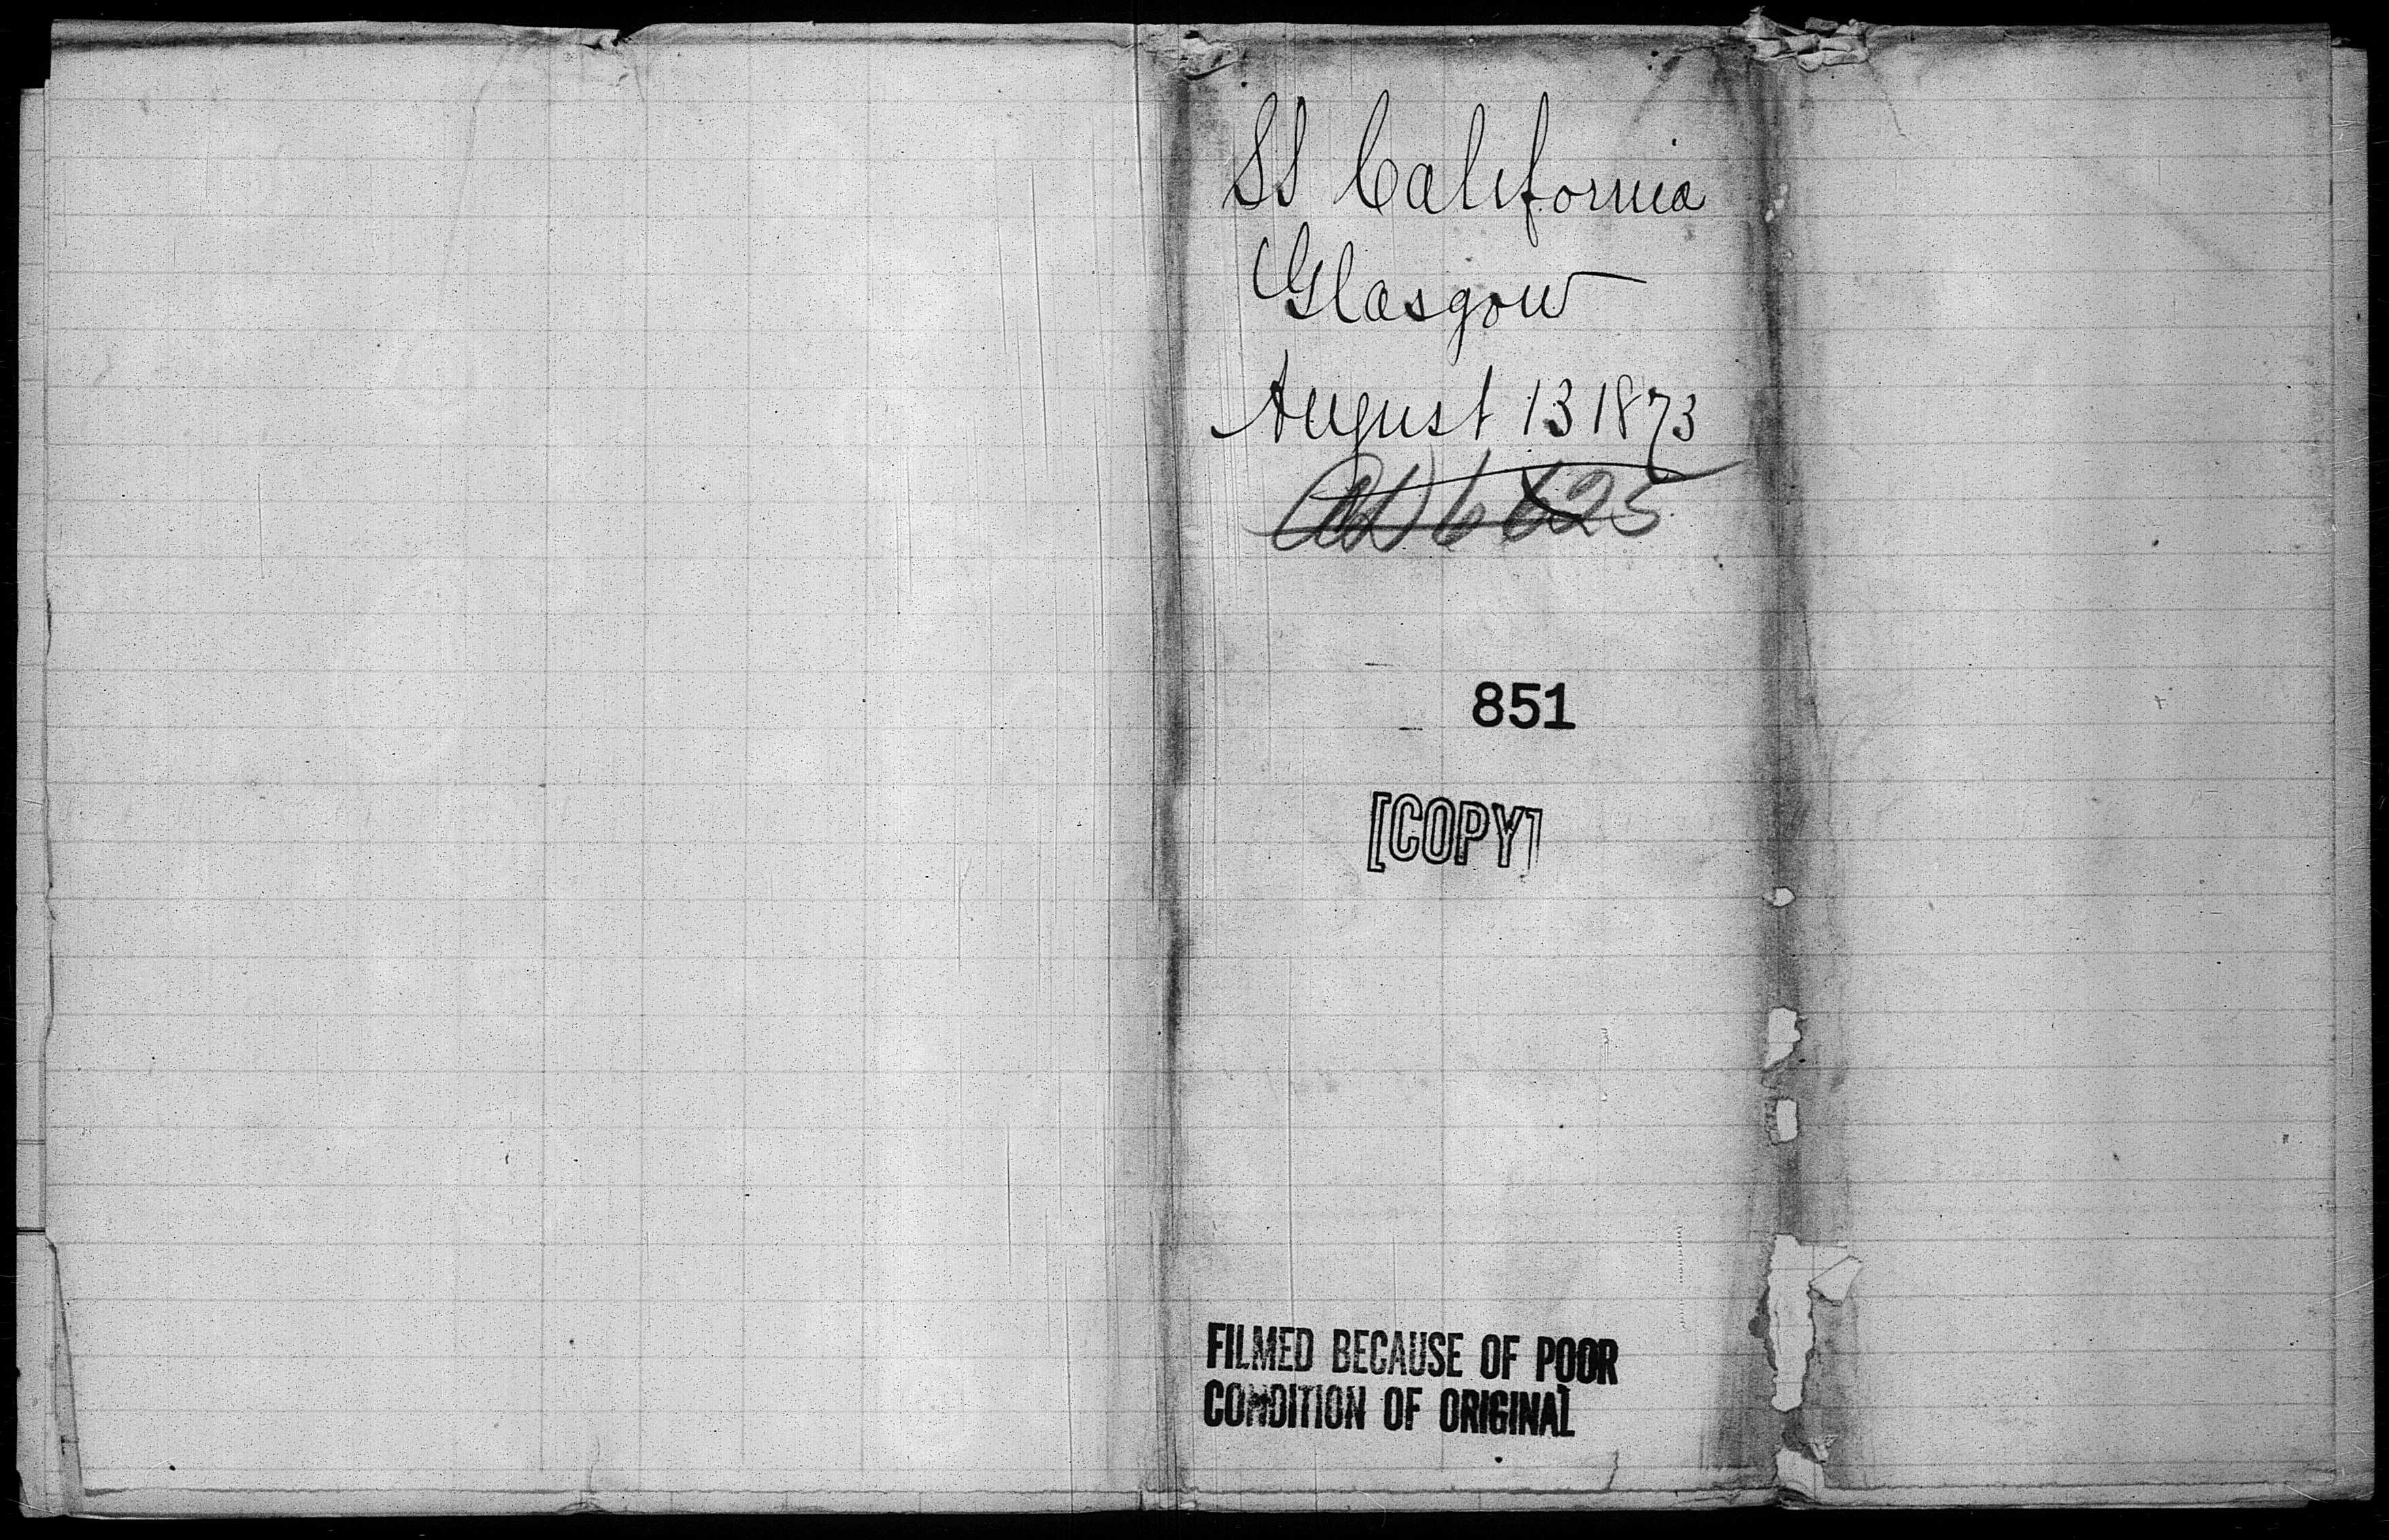 SS California
Glasgow
August 13 1873
851
[COPY]
FILMED BECAUSE OF POOR
CONDITION OF ORIGINAL